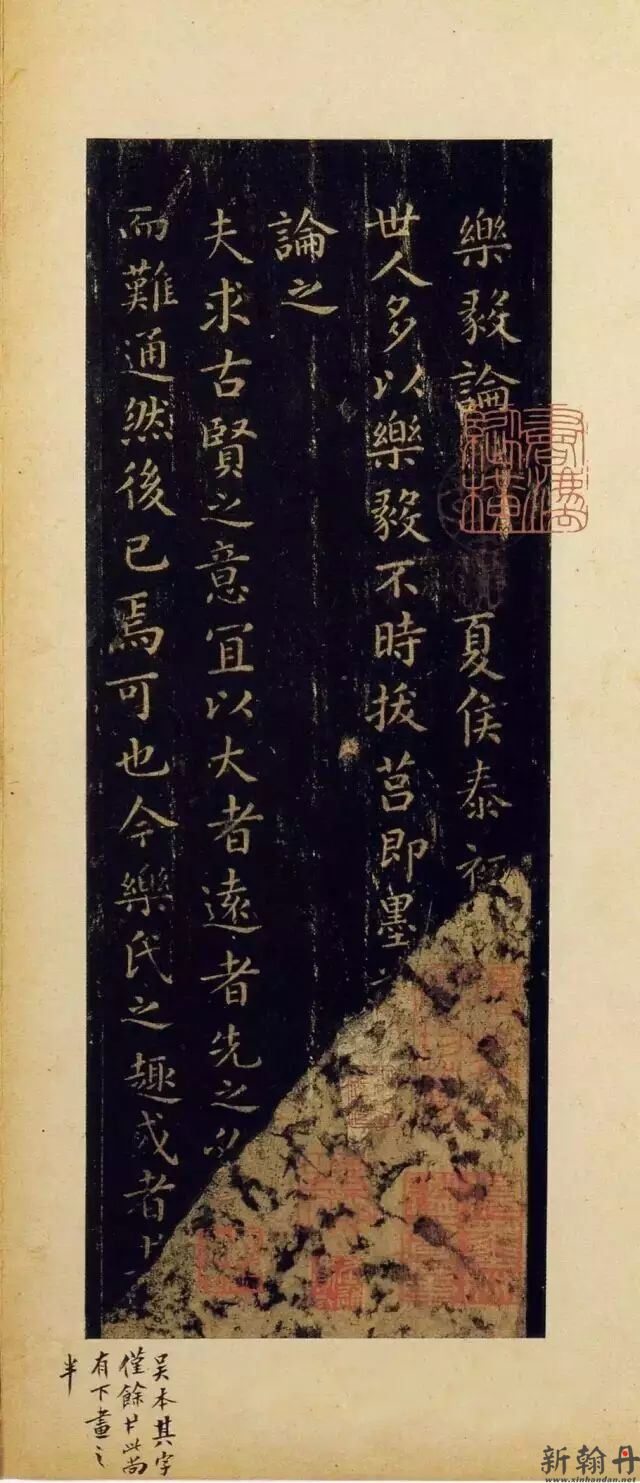 樂毅論 夏侯泰初
世人多以樂毅不時拔莒即墨
論之
夫求古賢之意宜以大者遠者先之
而難通然後已焉可也今樂氏之趣或者
吴本其字
僅餘此尚
有下畫之
半
新翰丹
www.xinhandan.net